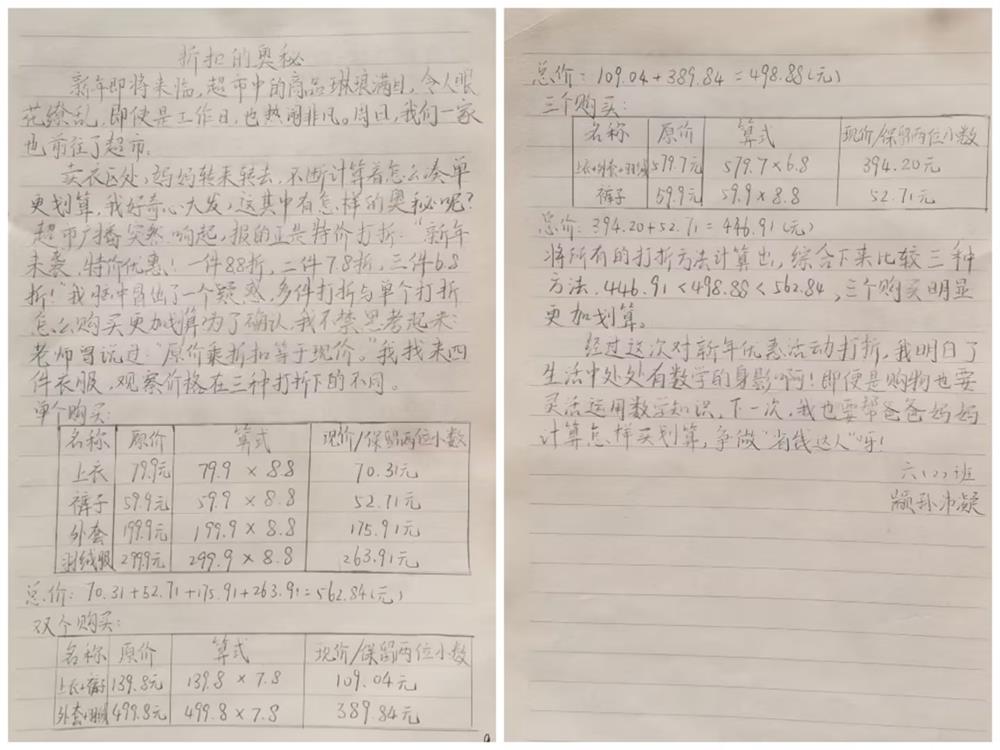 折扣的奥秘
新年即将来临,超市中的商品琳琅满目,令人眼
花缭乱,即使是工作日,也热闹非凡。周日,我们一家
也前往了超市。
卖衣区处,妈妈转来转去,不断计算着怎么凑单
更划算,我好奇心大发,这其中有怎样的奥秘呢?
超市广播突然响起,报的正是特价打折:“新年
来袭,特价优惠!一件88折,二件7.8折,三件6.8
折!”我脑中冒出了一个疑惑,多件打折与单个打折
怎么购买更加划算?为了确认,我不禁思考起来:
老师曾说过:“原价乘折扣等于现价。”我找来四
件衣服,观察价格在三种打折下的不同。
单个购买:
名称 原价 算式 现价/保留两位小数
上衣 79.9元 79.9 × 8.8 70.31元
裤子 59.9元 59.9 × 8.8 52.71元
外套 199.9元 199.9 × 8.8 175.91元
羽绒服 299.9元 299.9 × 8.8 263.91元
总价: 70.31+52.71+175.91+263.91=562.84(元)
双个购买:
名称 原价 算式 现价/保留两位小数
上衣+裤子 139.8元 139.8 × 7.8 109.04元
外套+羽绒服 499.8元 499.8 × 7.8 389.84元
总价: 109.04+389.84=498.88(元)
三个购买:
名称 原价 算式 现价/保留两位小数
上衣+外套+羽绒服 579.7元 579.7×6.8 394.20元
裤子 59.9元 59.9×8.8 52.71元
总价: 394.20+52.71=446.91(元)
将所有的打折方法计算出,综合下来比较三种
方法,446.91<498.88<562.84,三个购买明显
更加划算。
经过这次对新年优惠活动打折,我明白了
生活中处处有数学的身影啊!即使是购物也要
灵活运用数学知识,下一次,我也要帮爸爸妈妈
计算怎样买划算,争做“省钱达人”呀!
六(2)班
颛孙沛凝